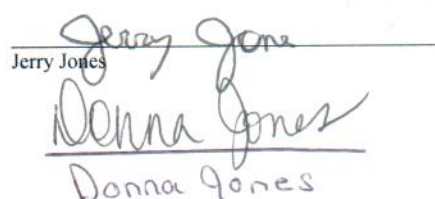 Jerry Jone
Jerry Jones
Donna Jones
Donna Jones